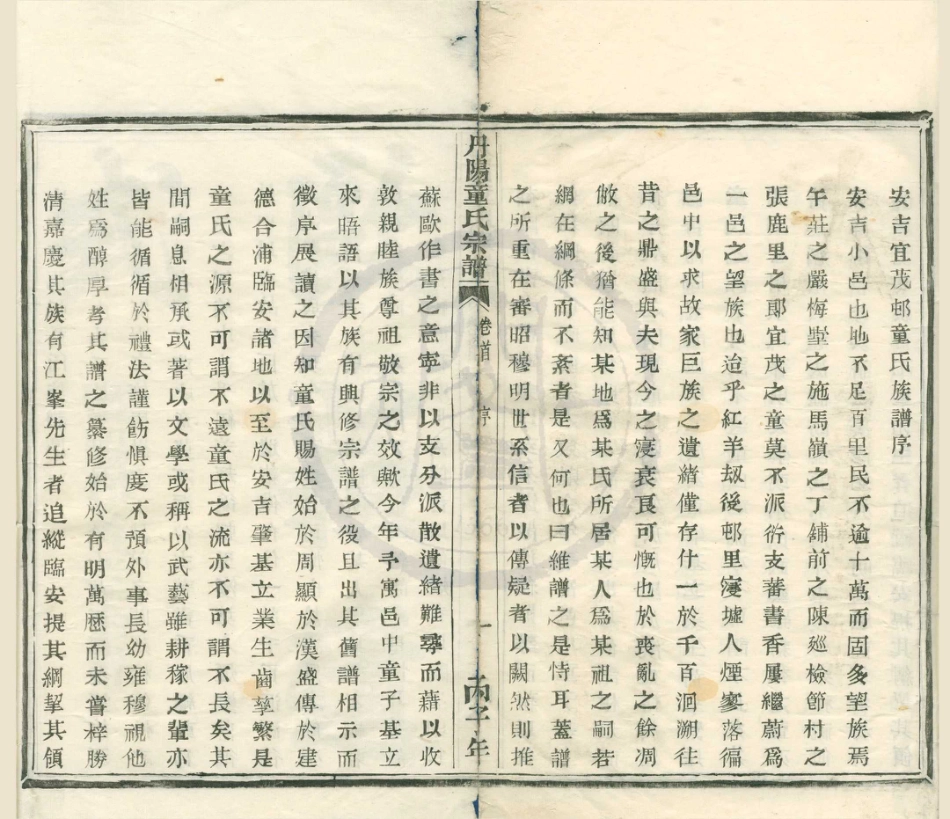 安吉宜茂邨童氏族譜序
安吉小邑也地不足百里民不逾十萬而固多望族焉
午莊之嚴梅墪之施馬嶺之丁舖前之陳廵檢節村之
張鹿里之郎宜茂之童莫不派衍支蕃書香屢繼蔚爲
一邑之望族也迨乎紅羊刼後邨里墟人煙寥落徧
邑中以求故家巨族之遺緒僅存什一於千百洄溯往
昔之鼎盛與夫現今之寖衰良可慨也於喪亂之餘凋
敝之後猶能知某地爲某氏所居某人爲某祖之嗣若
網在綱條而不紊者是又何也曰維譜之是恃耳蓋譜
之所重在審昭穆明世系信者以傳疑者以闕然則推
丹陽童氏宗譜
卷首
序
一
丙子年
蘇歐作書之意寧非以支分派散遺緒難尋而藉以收
敦親睦族尊祖敬宗之效歟今年予寓邑中童子基立
來晤語以其族有興修宗譜之役且出其舊譜相示而
徵序展讀之因知童氏賜姓始於周顯於漢盛傳於建
德合浦臨安諸地以至於安吉肇基立業生齒孳繁是
童氏之源不可謂不遠童氏之流亦不可謂不長矣其
間嗣息相承或著以文學或稱以武藝雖耕稼之輩亦
皆能循循於禮法謹飭惧度不預外事長幼雍穆視他
姓爲醇厚考其譜之纂修始於有明萬厯而未嘗梓勝
淸嘉慶其族有江峯先生者追縱臨安提其綱挈其領